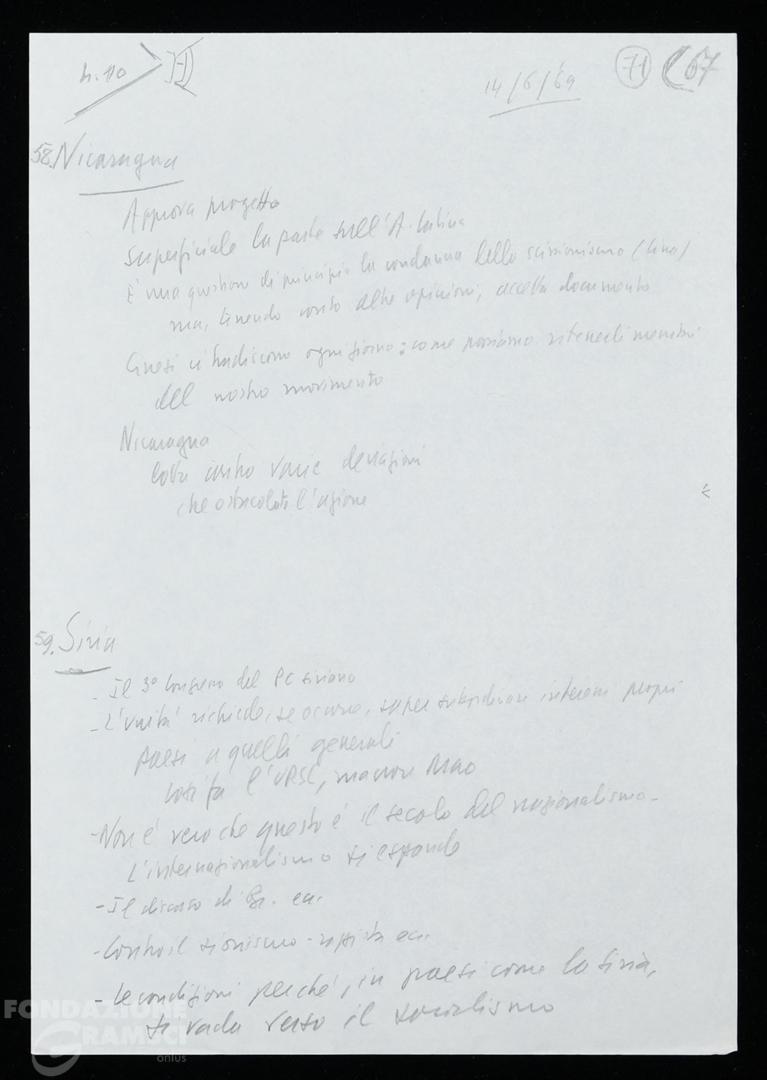 h. 10
14/6/69
71
67
58. Nicaragua
Approva progetto
Superficiale la parte sull'A. Latina
È una questione di principio la condanna dello scissionismo (Cina)
ma, tenendo conto altre opinioni, accetta documento
Cinesi ci tradiscono ogni giorno: come possiamo ritenerli membri
del nostro movimento
Nicaragua
lotta contro varie deviazioni
che ostacolato l'azione
59. Siria
- Il 3° Congresso del PC siriano
- L'unità richiede, se occorre, saper subordinare interessi propri
paesi a quelli generali
Così fa l'URSS, ma non Mao
- Non è vero che questo è il secolo del nazionalismo -
L'internazionalismo si espande
- Il discorso di Br. ecc.
- Contro il sionismo - ecc.
- Le condizioni perché, in paesi come la Siria,
si vada verso il socialismo
FONDAZIONE
GRAMSCI
onlus